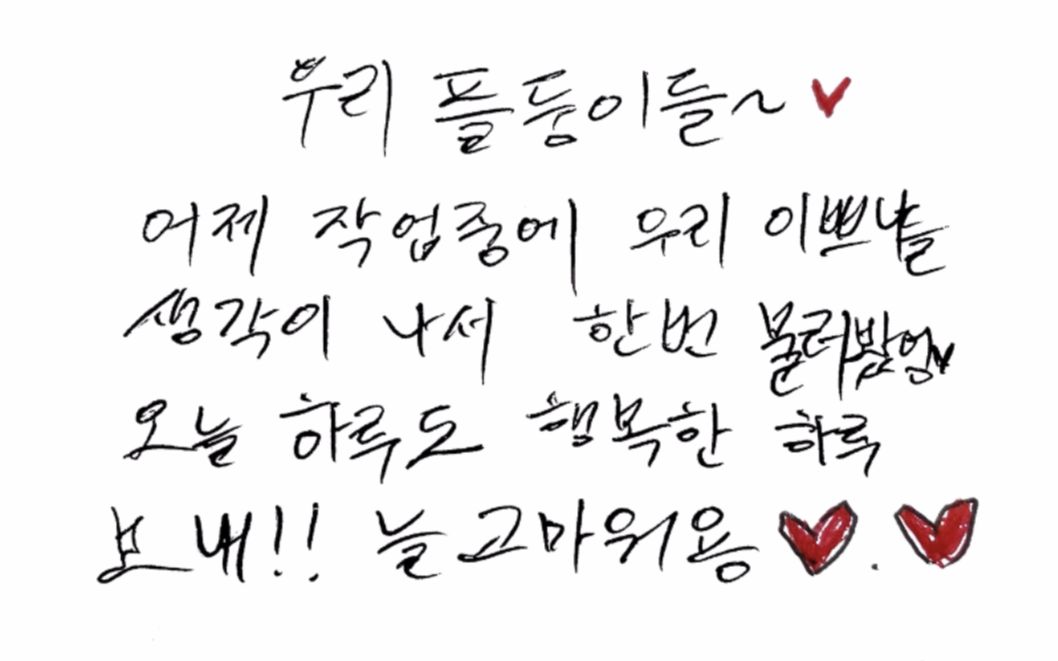 우리 플둥이들~♥
어제 작업중에 우리 이쁘니들
생각이 나서 한번 불러봤엉♥
오늘 하루도 행복한 하루
보내!! 늘 고마워용♥.♥